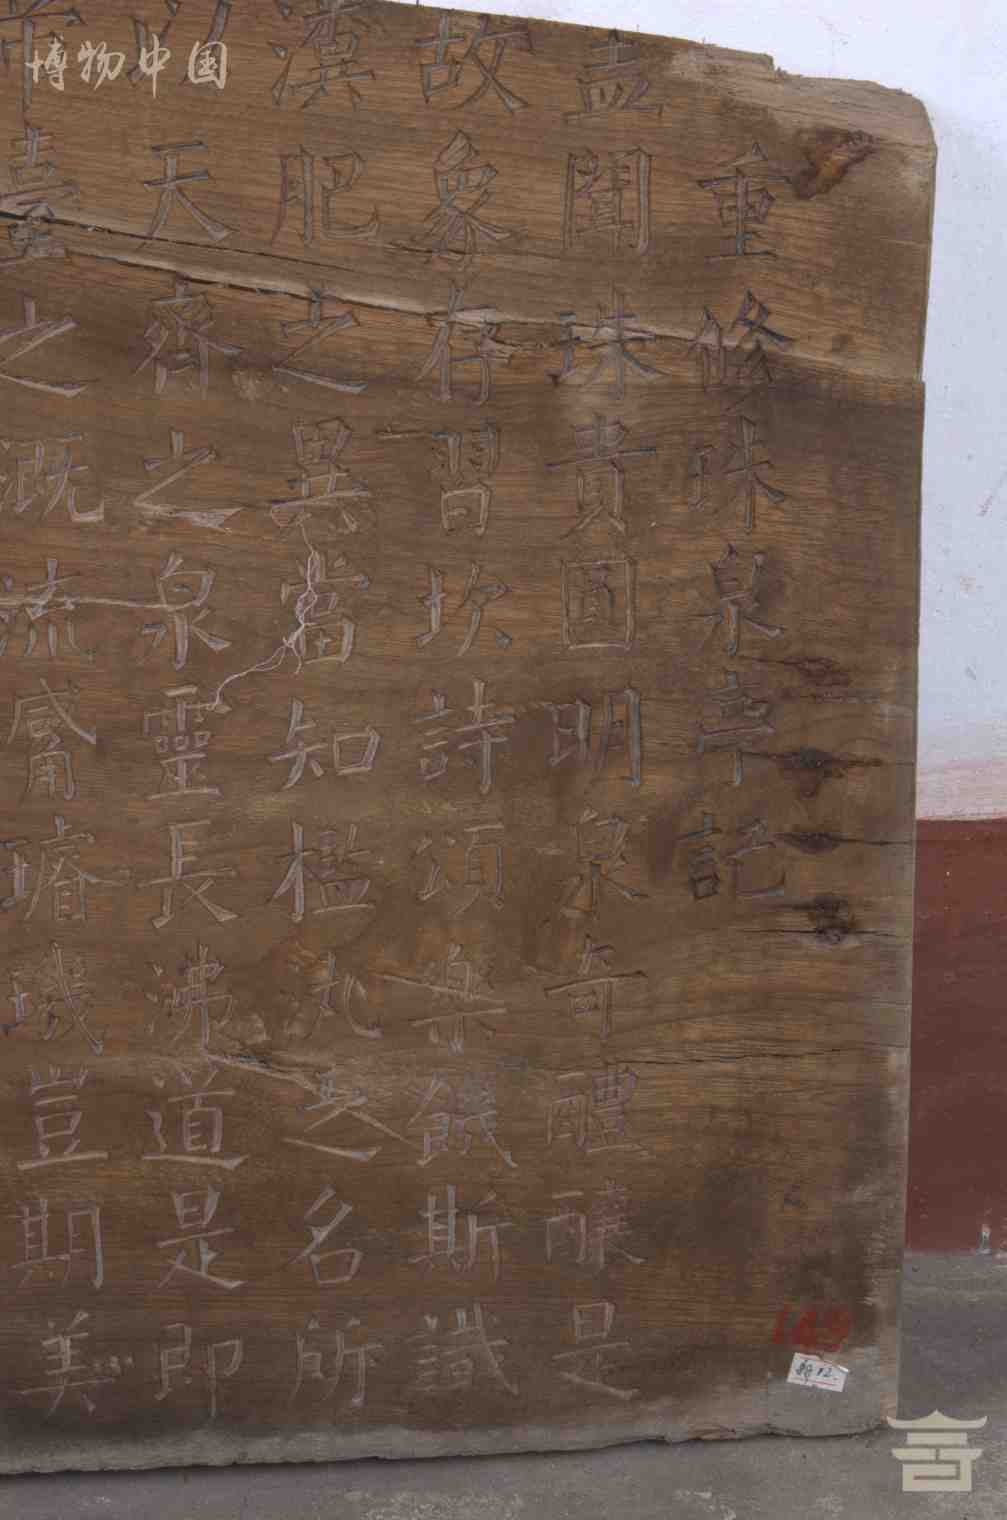 重修珠泉亭記
盍聞珠貴圓明泉奇醴釀是
故象存習坎詩頌樂饑斯識
瀵肥之異當知檻氿之名所
以天齊之泉靈長沸道是即
臺之溉流觱璿璣豈期美
149
博物中国